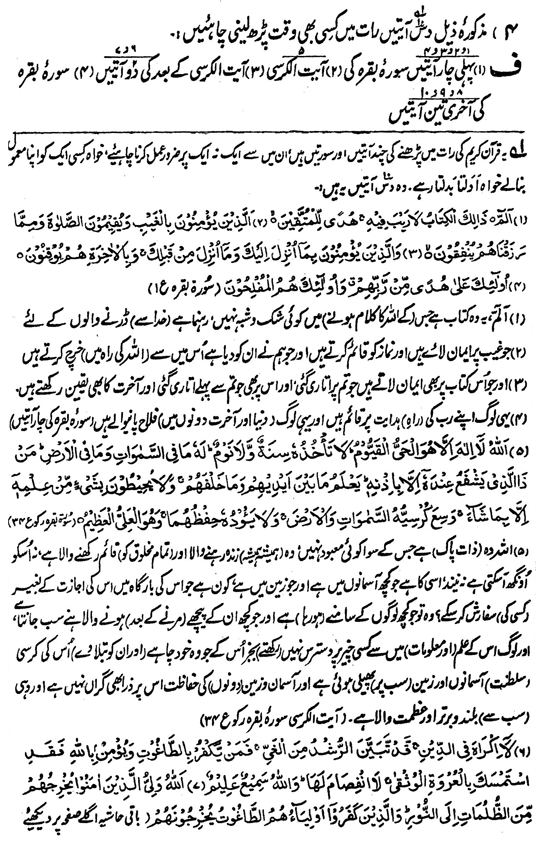 ۴) مذکورۂ ذیل دس آیتیں رات میں کسی بھی وقت پڑھ لینی چاہئیں:۔
ف (۱) پہلی چار آیتیں سورۂ بقرہ کی (۲) آیت الکرسی (۳) آیت الکرسی کے بعد کی دو آیتیں (۴) سورۂ بقرہ
کی آخری تین آیتیں
لے قرآن کریم کی رات میں پڑھنے کی چند آیتیں اور سورتیں ہیں، ان میں سے ایک نہ ایک پر ضرور عمل کرنا چاہیے، خواہ کسی ایک کو اپنا معمول
بنالے خواہ ادلتا بدلتا رہے۔ وہ دس آیتیں یہ ہیں:۔
(۱) الٓمّٓ ذَالِكَ الْكِتَابُ لَارَيْبَ فِيْهِ هُدًى لِّلْمُتَّقِيْنَ (۲) الَّذِيْنَ يُؤْمِنُوْنَ بِالْغَيْبِ وَيُقِيْمُوْنَ الصَّلٰوةَ وَمِمَّا
رَزَقْنَاهُمْ يُنْفِقُوْنَ (۳) وَالَّذِيْنَ يُؤْمِنُوْنَ بِمَا اُنْزِلَ اِلَيْكَ وَمَا اُنْزِلَ مِنْ قَبْلِكَ وَبِالْاٰخِرَةِ هُمْ يُوْقِنُوْنَ
(۴) اُولٰٓئِكَ عَلٰى هُدًى مِّنْ رَّبِّهِمْ وَاُولٰٓئِكَ هُمُ الْمُفْلِحُوْنَ (سورۂ بقرہ ع۱)
(۱) الٓمٓ، یہ وہ کتاب ہے جس (کے اللہ کا کلام ہونے) میں کوئی شک و شبہ نہیں، رہنما ہے (خدا سے) ڈرنے والوں کے لئے
(۲) جو غیب پر ایمان لاتے ہیں اور نماز کو قائم کرتے ہیں اور جو ہم نے ان کو دیا ہے اُس میں سے (اللہ کی راہ میں) خرچ کرتے ہیں
(۳) اور جو اُس کتاب پر بھی ایمان لاتے ہیں جو تم پر اتاری گئی، اور اس پر بھی جو تم سے پہلے اتاری گئی اور آخرت کا بھی یقین رکھتے ہیں۔
(۴) یہی لوگ اپنے رب کی (راہ) ہدایت پر قائم ہیں اور یہی لوگ (دنیا اور آخرت دونوں میں) فلاح پانیوالے ہیں (سورۂ بقرہ کی چار آیتیں)
(۵) اَللّٰهُ لَا اِلٰهَ اِلَّا هُوَ الْحَىُّ الْقَيُّوْمُ لَا تَأْخُذُهٗ سِنَةٌ وَّلَا نَوْمٌ لَهٗ مَا فِى السَّمٰوَاتِ وَمَا فِى الْاَرْضِ مَنْ
ذَا الَّذِىْ يَشْفَعُ عِنْدَهٗ اِلَّا بِاِذْنِهٖ يَعْلَمُ مَا بَيْنَ اَيْدِيْهِمْ وَمَا خَلْفَهُمْ وَلَا يُحِيْطُوْنَ بِشَىْءٍ مِّنْ عِلْمِهٖ
اِلَّا بِمَا شَآءَ وَسِعَ كُرْسِيُّهُ السَّمٰوَاتِ وَالْاَرْضَ وَلَا يَؤُدُهٗ حِفْظُهُمَا وَهُوَ الْعَلِىُّ الْعَظِيْمُ (سورۂ بقرہ رکوع ۳۴)
(۵) اللہ وہ (ذات پاک) ہے جس کے سوا کوئی معبود نہیں، وہ (ہمیشہ ہمیشہ) زندہ رہنے والا اور (تمام مخلوق کو) قائم رکھنے والا ہے، نہ اُسکو
اونگھ آسکتی ہے نہ نیند، اُسی کا ہے جو کچھ آسمانوں میں ہے اور جو زمین میں ہے، کون ہے جو اس کی بارگاہ میں اس کی اجازت کے بغیر
(کسی کی) سفارش کر سکے؟ وہ تو جو کچھ لوگوں کے سامنے (ہو رہا) ہے اور جو کچھ ان کے پیچھے (مرنے کے بعد) ہونے والا ہے سب جانتا ہے،
اور لوگ اس کے علم (اور معلومات) میں سے کسی چیز پر دسترس نہیں (رکھتے) بجز اُس کے جو وہ خود چاہے (اور ان کو بتلا دے) اُس کی کرسی
(سلطنت) آسمانوں اور زمین (سب پر) پھیلی ہوئی ہے اور آسمان و زمین (دونوں) کی حفاظت اس پر ذرا بھی گراں نہیں ہے اور وہی
(سب سے) بلند و برتر اور عظمت والا ہے۔ (آیت الکرسی سورۂ بقرہ رکوع ۳۴)
(۶) لَا اِكْرَاهَ فِى الدِّيْنِ قَدْ تَبَيَّنَ الرُّشْدُ مِنَ الْغَىِّ فَمَنْ يَّكْفُرْ بِالطَّاغُوْتِ وَيُؤْمِنْ بِاللهِ فَقَدِ
اسْتَمْسَكَ بِالْعُرْوَةِ الْوُثْقٰى لَا انْفِصَامَ لَهَا وَاللهُ سَمِيْعٌ عَلِيْمٌ (۷) اَللهُ وَلِىُّ الَّذِيْنَ اٰمَنُوْا يُخْرِجُهُمْ
مِّنَ الظُّلُمَاتِ اِلَى النُّوْرِ وَالَّذِيْنَ كَفَرُوْا اَوْلِيَاءُ هُمُ الطَّاغُوْتُ يُخْرِجُوْنَهُمْ (باقی حاشیہ اگلے صفحہ پر دیکھئے